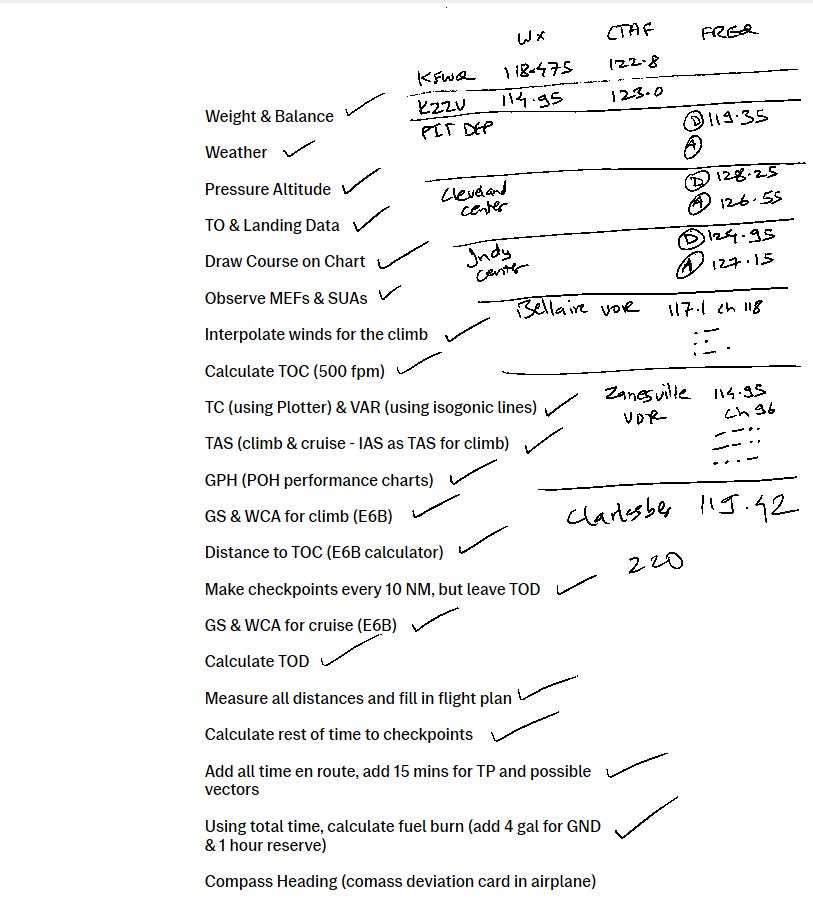 Wx CTAF FREQ
KFWQ 118.475 122.8
KZZV 114.95 123.0
PIT DEP D 119.35
A
Cleveland D 128.25
center A 126.55
Indy D 124.95
center A 127.15
Bellaire VOR 117.1 ch 118
Zanesville 114.95
VOR ch 96
119.42
220
Weight & Balance
Weather
Pressure Altitude
TO & Landing Data
Draw Course on Chart
Observe MEFs & SUAs
Interpolate winds for the climb
Calculate TOC (500 fpm)
TC (using Plotter) & VAR (using isogonic lines)
TAS (climb & cruise - IAS as TAS for climb)
GPH (POH performance charts)
GS & WCA for climb (E6B)
Distance to TOC (E6B calculator)
Make checkpoints every 10 NM, but leave TOD
GS & WCA for cruise (E6B)
Calculate TOD
Measure all distances and fill in flight plan
Calculate rest of time to checkpoints
Add all time en route, add 15 mins for TP and possible
vectors
Using total time, calculate fuel burn (add 4 gal for GND
& 1 hour reserve)
Compass Heading (comass deviation card in airplane)